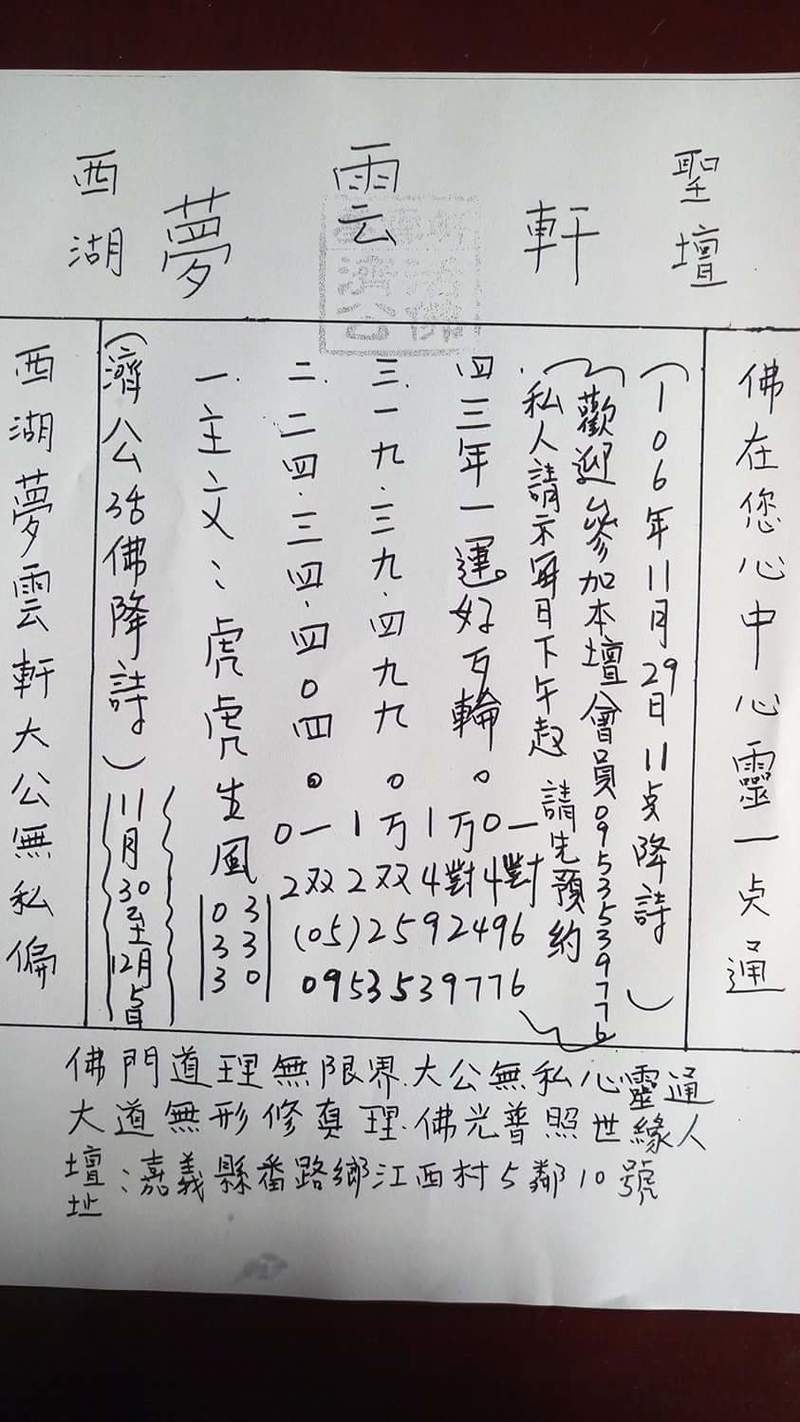 西湖 夢雲軒 聖壇
佛在您心中心靈一点通
(106年11月29日11点降詩)
歡迎參加本壇會員0953539776
私人請示每日下午起 請先預約
四 三年一運好万輪。
三 一九.三九.四九九。
二.二四.三四.四0四。
一.主文:虎虎生風
(濟公活佛降詩)
11月30至12月5日
西湖夢雲軒大公無私偏
0一1万1万0一
2双2双4對4對
(05)2592496
0953539776
03
33
30
佛門道理無限界.大公無私心靈通
大道無形修真理.佛光普照世緣人
壇址:嘉義縣番路鄉江西村5鄰10號